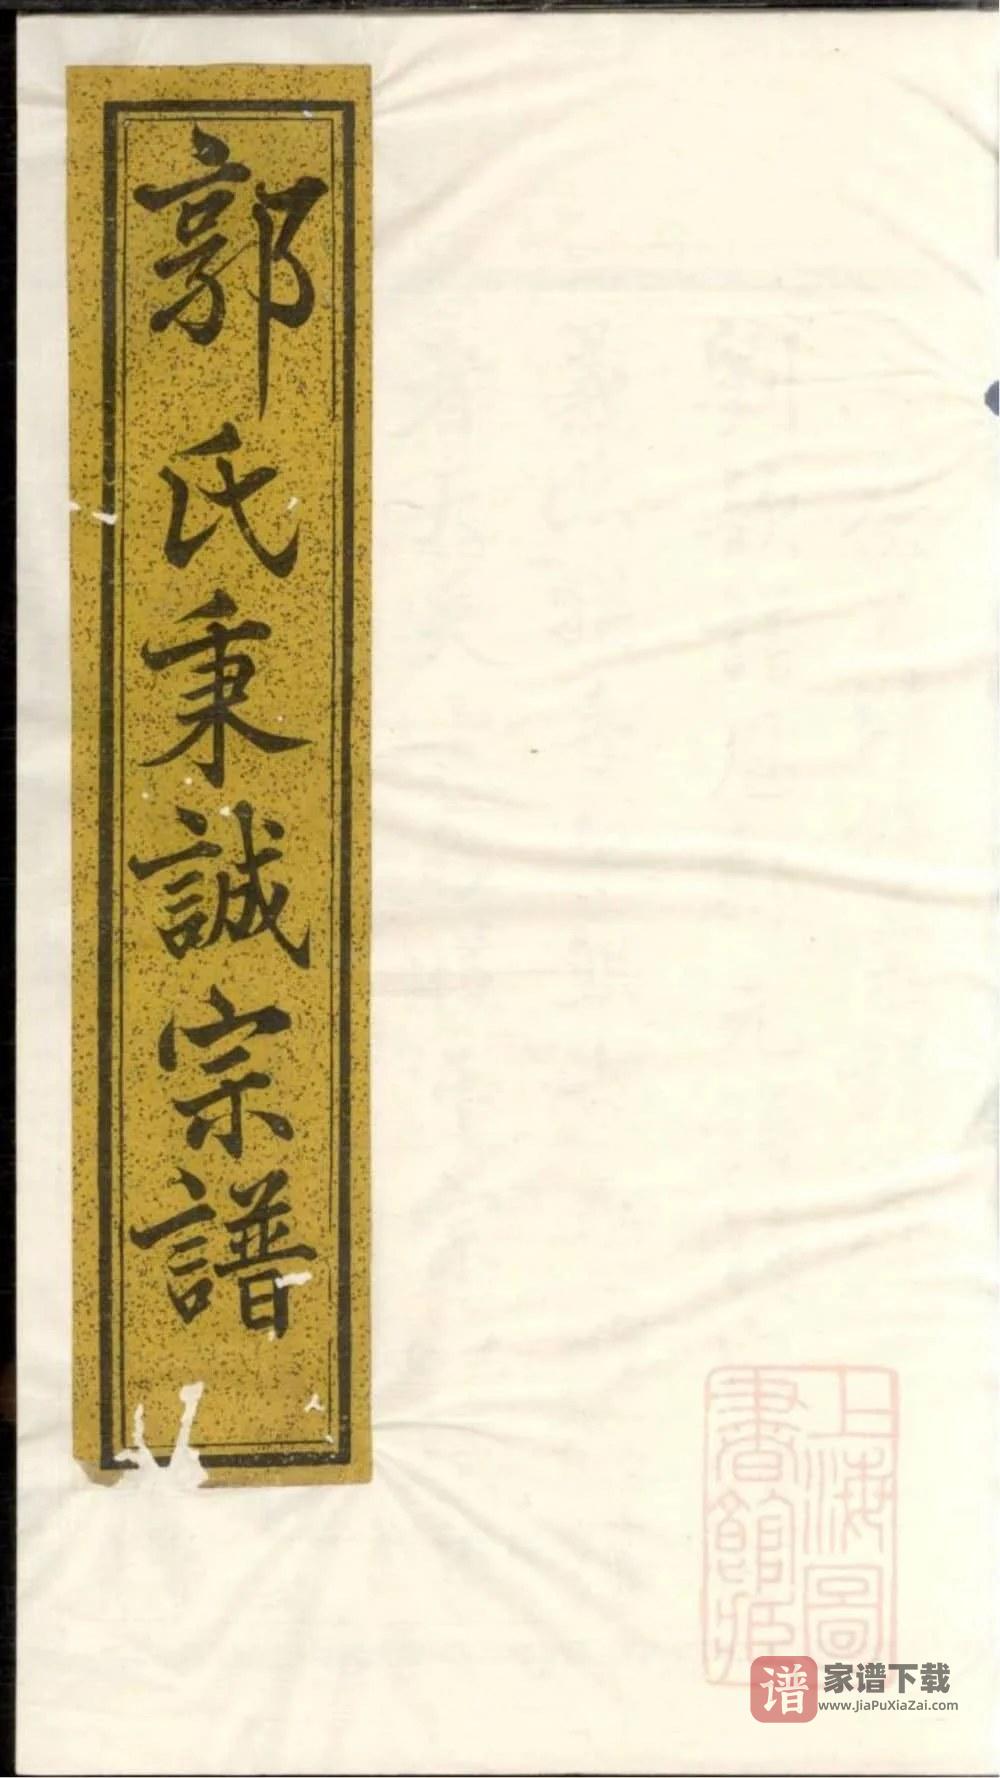 郭氏秉誠宗譜
上海圖
書館藏
谱 家谱下载
www.JiaPuXiaZai.com